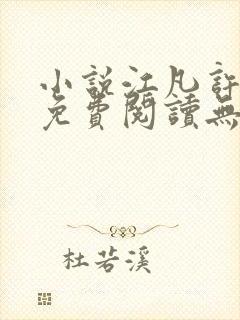 小說江凡許
免費閱讀無
杜若溪